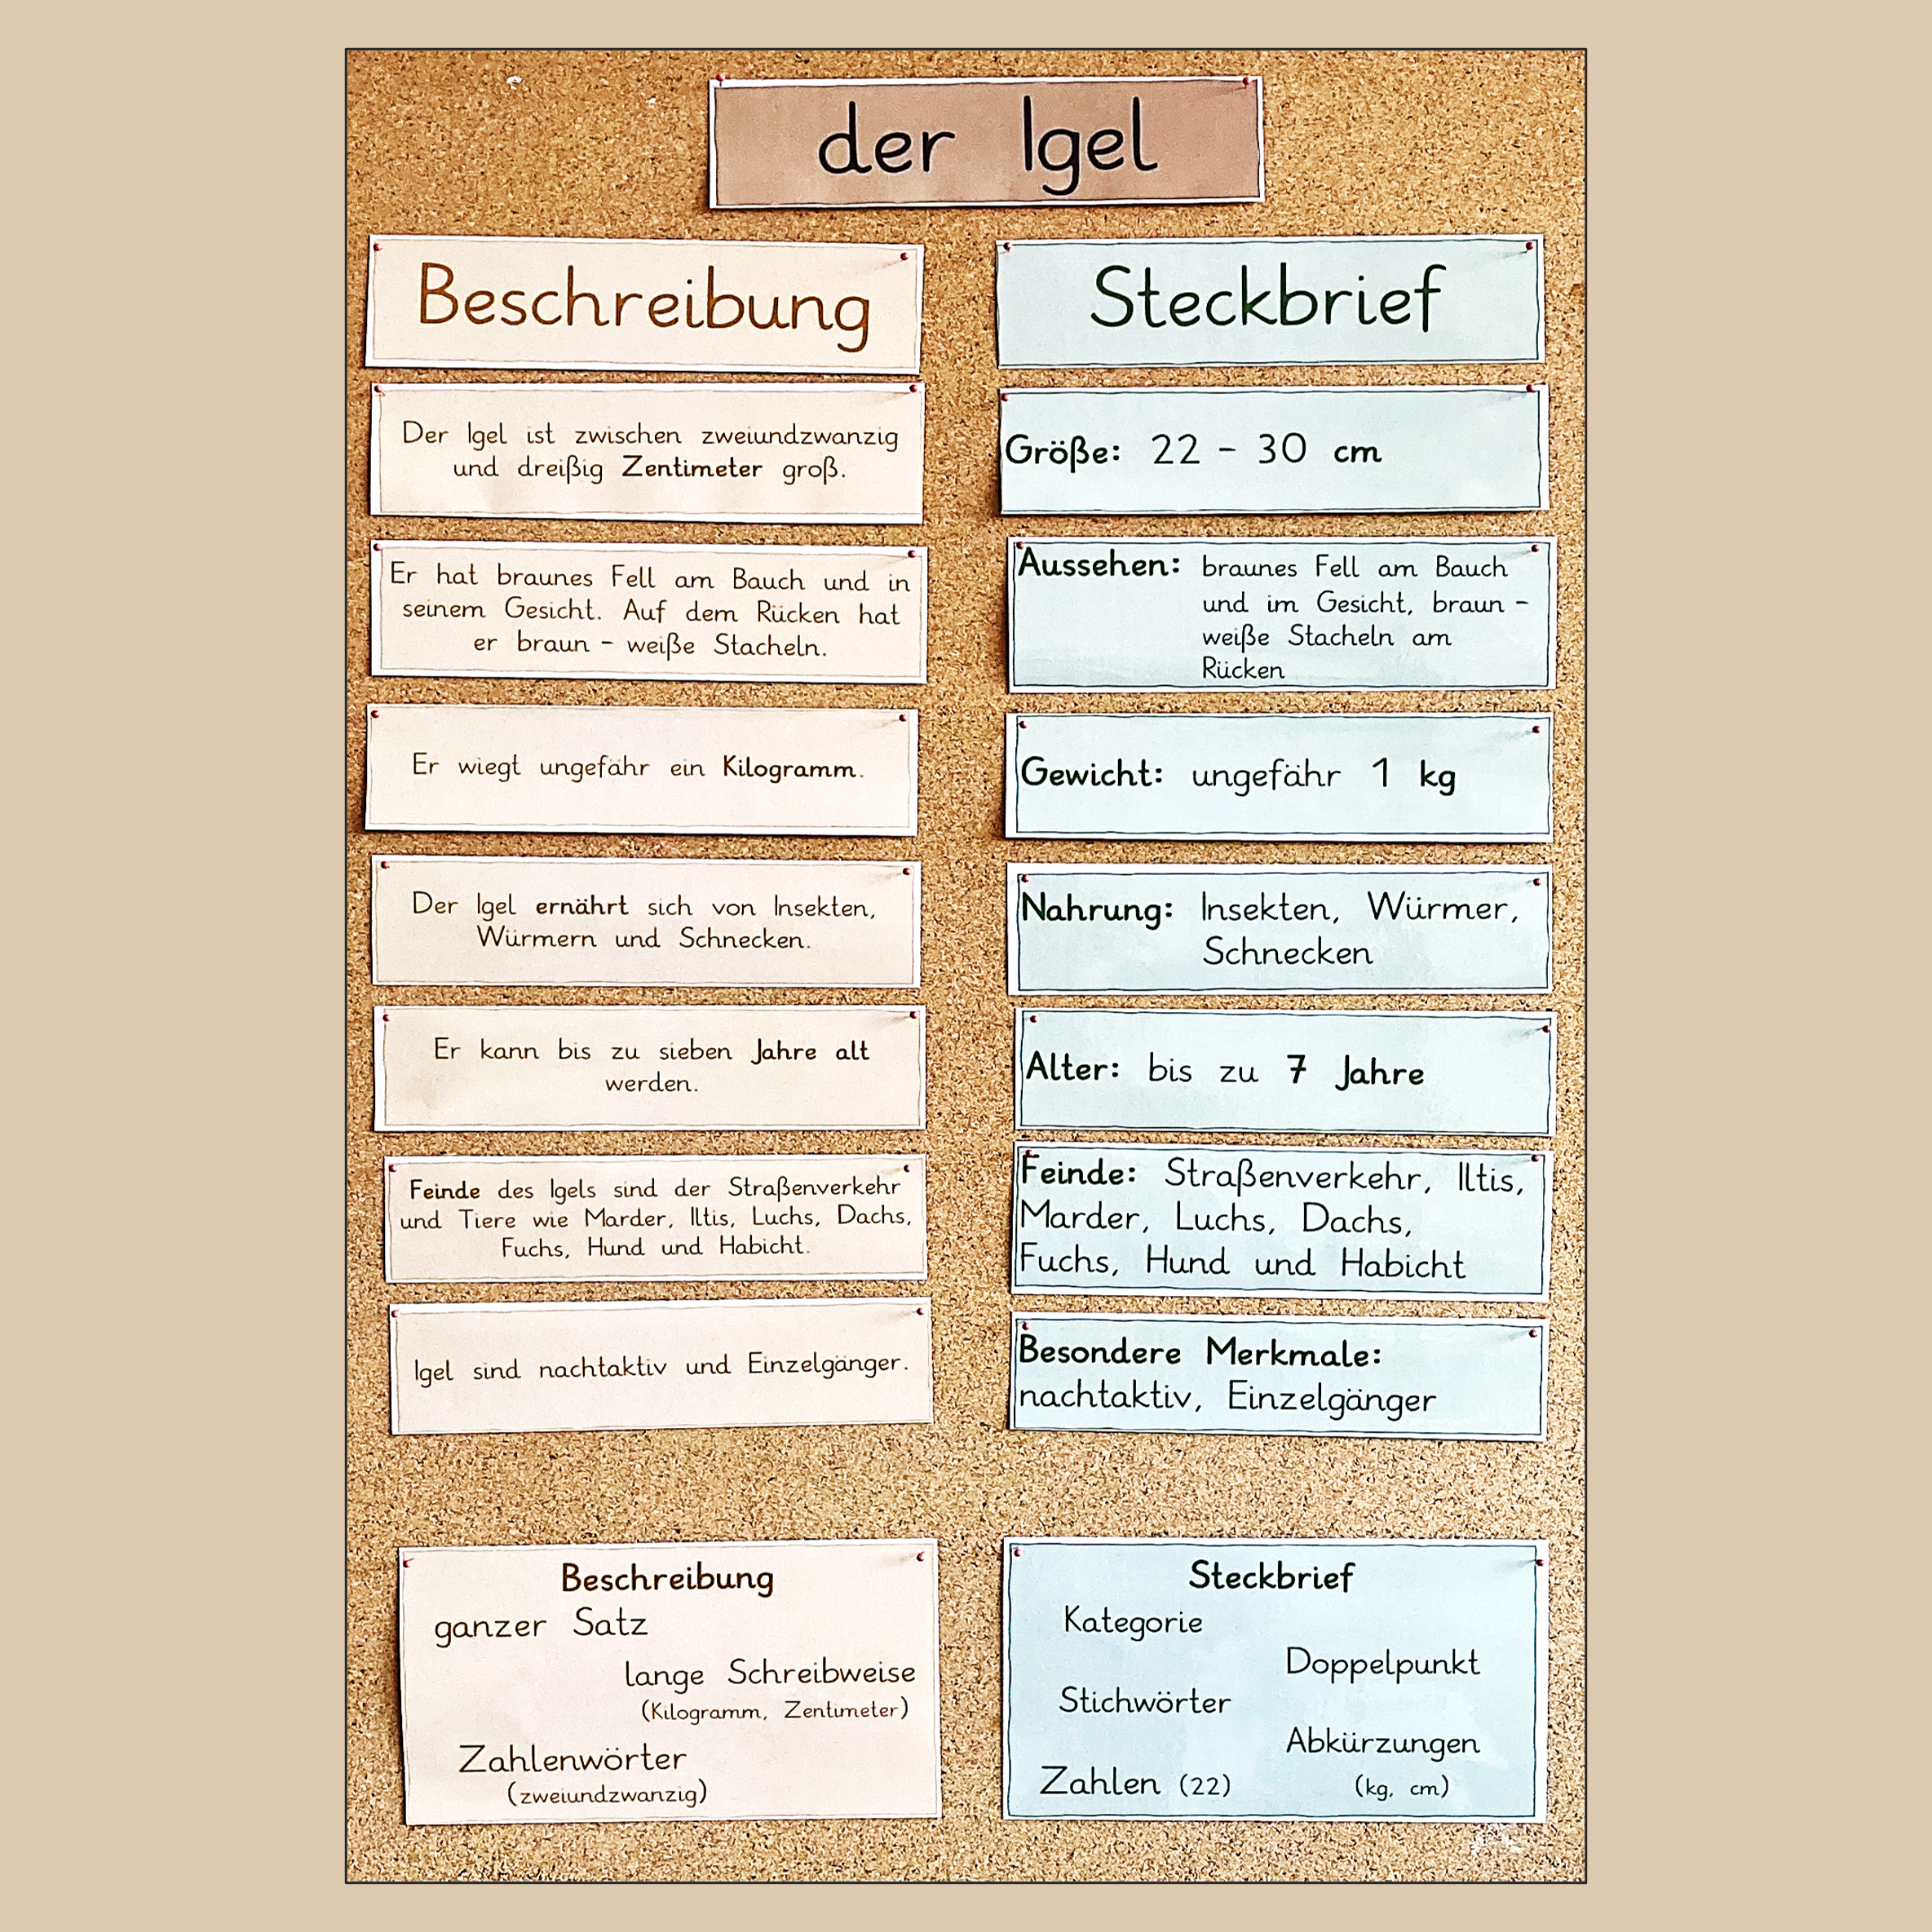 der Igel
Beschreibung
Der Igel ist zwischen zweiundzwanzig
und dreißig Zentimeter groß.
Er hat braunes Fell am Bauch und in
seinem Gesicht. Auf dem Rücken hat
er braun - weiße Stacheln.
Er wiegt ungefähr ein Kilogramm.
Der Igel ernährt sich von Insekten,
Würmern und Schnecken.
Er kann bis zu sieben Jahre alt
werden.
Feinde des Igels sind der Straßenverkehr
und Tiere wie Marder, Iltis, Luchs, Dachs,
Fuchs, Hund und Habicht.
Igel sind nachtaktiv und Einzelgänger.
Beschreibung
ganzer Satz
lange Schreibweise
(Kilogramm, Zentimeter)
Zahlenwörter
(zweiundzwanzig)
Steckbrief
Größe: 22 - 30 cm
Aussehen: braunes Fell am Bauch
und im Gesicht, braun -
weiße Stacheln am
Rücken
Gewicht: ungefähr 1 kg
Nahrung: Insekten, Würmer,
Schnecken
Alter: bis zu 7 Jahre
Feinde: Straßenverkehr, Iltis,
Marder, Luchs, Dachs,
Fuchs, Hund und Habicht
Besondere Merkmale:
nachtaktiv, Einzelgänger
Steckbrief
Kategorie
Doppelpunkt
Stichwörter
Abkürzungen
(kg, cm)
Zahlen (22)